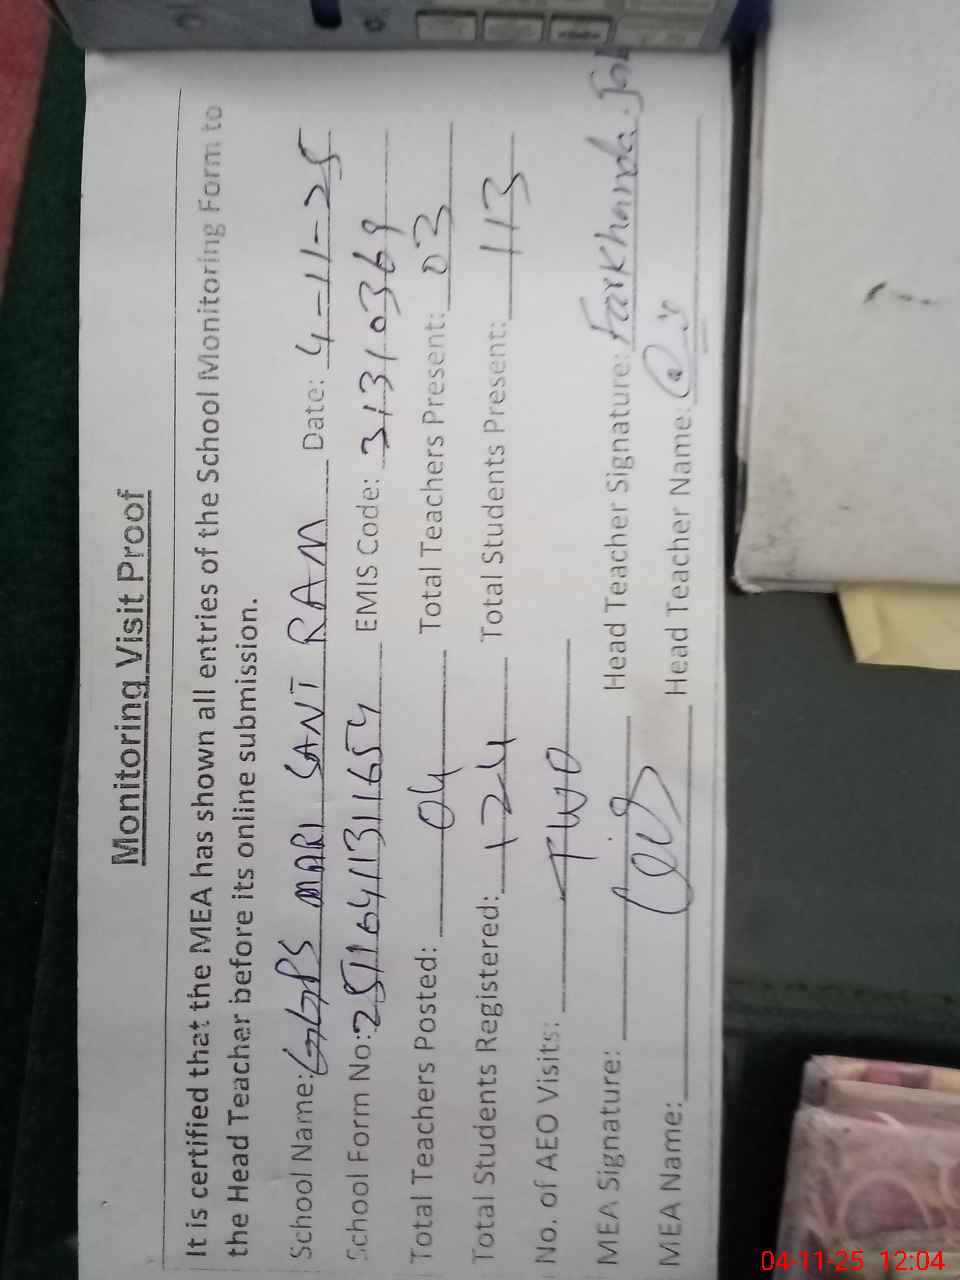 Monitoring Visit Proof
It is certified that the MEA has shown all entries of the School Monitoring Form to
the Head Teacher before its online submission.
School Name: GGPS MARI SANT RAM Date: 4-11-25
School Form No: 25116411311654 EMIS Code: 31310369
Total Teachers Posted: 04 Total Teachers Present: 03
Total Students Registered: 124 Total Students Present: 113
No. of AEO Visits: TWO
MEA Signature: Head Teacher Signature: Farkhanda
MEA Name: Head Teacher Name:
04-11-25 12:04